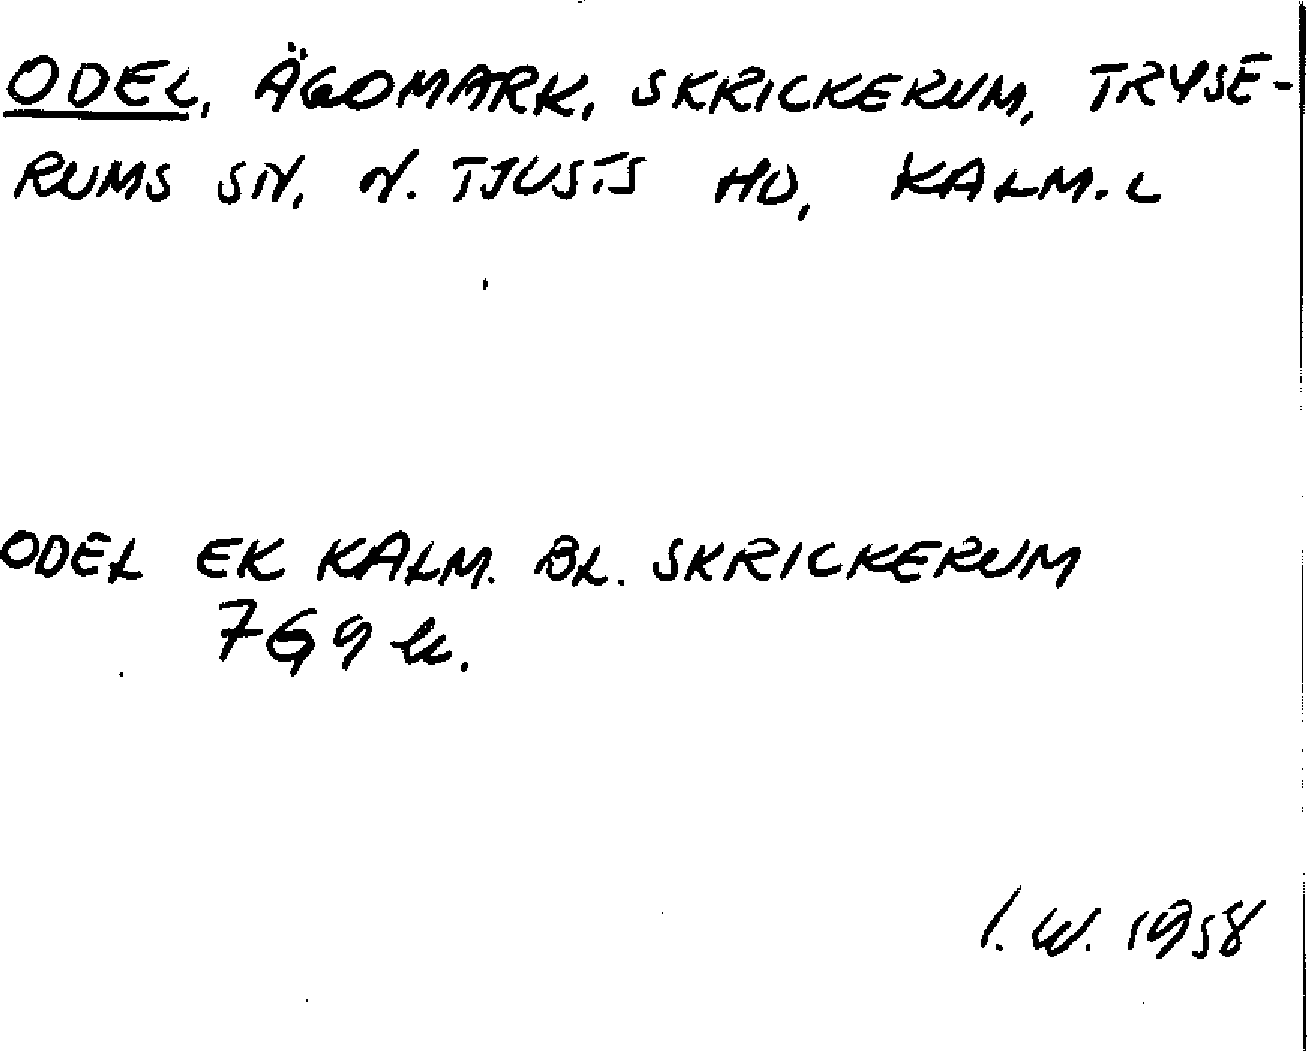 ODEL, ÄGOMARK, SKRICKERUM, TRYSE-
RUMS SN, N. TJUSTS HD, KALM. L
ODEL EK KALM. BL. SKRICKERUM
7G9k.
I. W. 1958